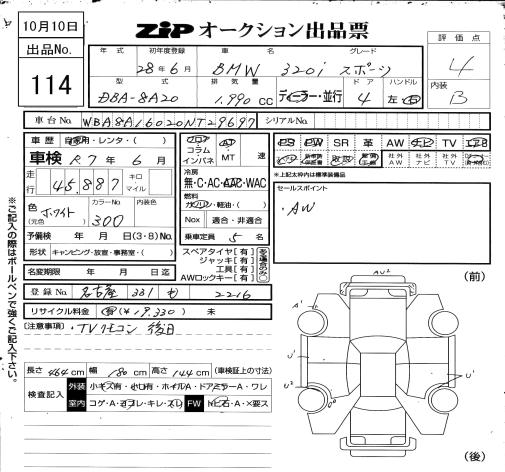 10月10日
ZIP オークション出品票
出品No.
114
年式 初年度登録 車名 グレード
28年6月 BMW 320i スポーツ
型式 排気量 ドア ハンドル
DBA-8A20 1.990 cc ディーラー・並行 4 左・右
評価点
4
内装
B
車台No. WBA8A16020NT29697 シリアルNo.
車歴 自家用・レンタ・( )
車検 R7年6月
走行 45.887 キロ マイル
色(元色) ホワイト カラーNo. 300 内装色
予備検 年 月 日(3・8)No.
形状 キャンピング・放送・事務室・( )
名変期限 年 月 日迄
フロア コラム インパネ AT MT 速
冷房
無・C・AC・AAC・WAC
燃料
ガソリン・軽油・( )
Nox 適合・非適合
乗車定員 5 名
スペアタイヤ[有]
ジャッキ[有]
工具[有]
AWロックキー[有]
PS PW SR 革 AW ナビ TV エアB
社外AW 社外ナビ 社外TV
※上記太枠内は標準装備品
セールスポイント
・AW
登録No. 名古屋 331 も 2216
リサイクル料金 有(¥19.330) 未
[注意事項]・TVリモコン 後日
長さ 464 cm 幅 180 cm 高さ 144 cm (車検証上の寸法)
検査記入 外装 小キズ有・小凹有・ホイルA・ドアミラーA・ワレ
室内 コゲ・A・ヨゴレ・キレ・スレ FW トビ石・A・×要ス
※ご記入の際はボールペンで強くご記入下さい。
(前)
AU2
A1
U1
U2
U1
(後)